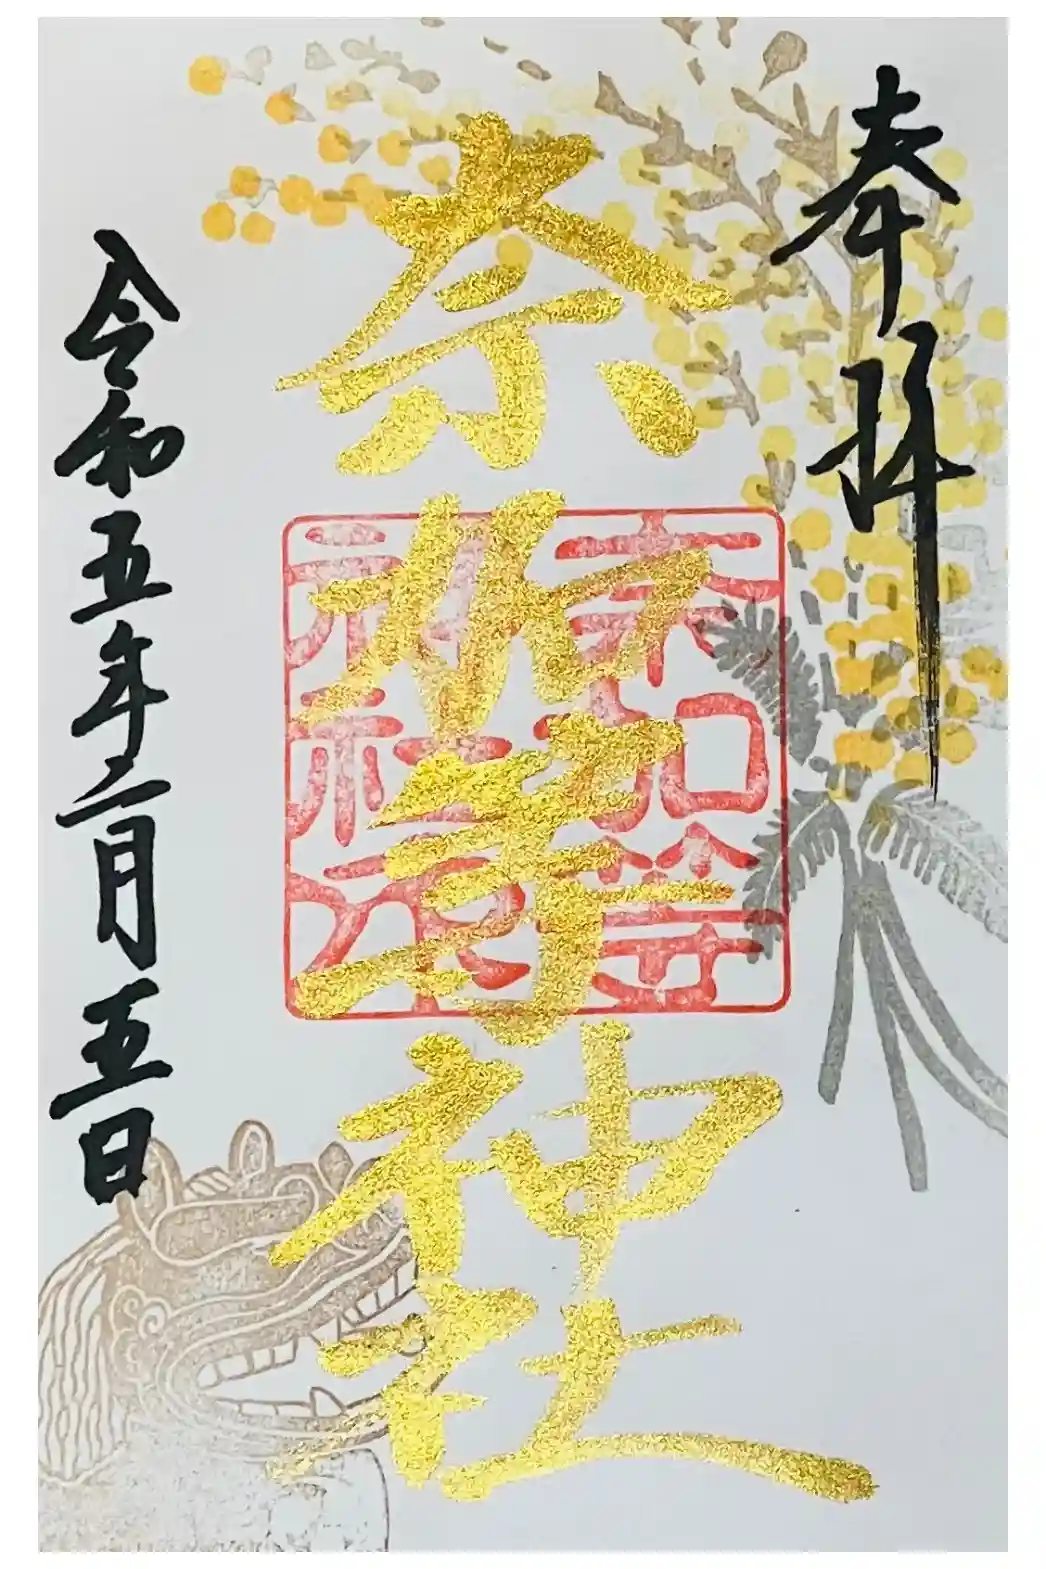 奉拝
奈加等神社
令和五年三月五日
奈加等
神社印